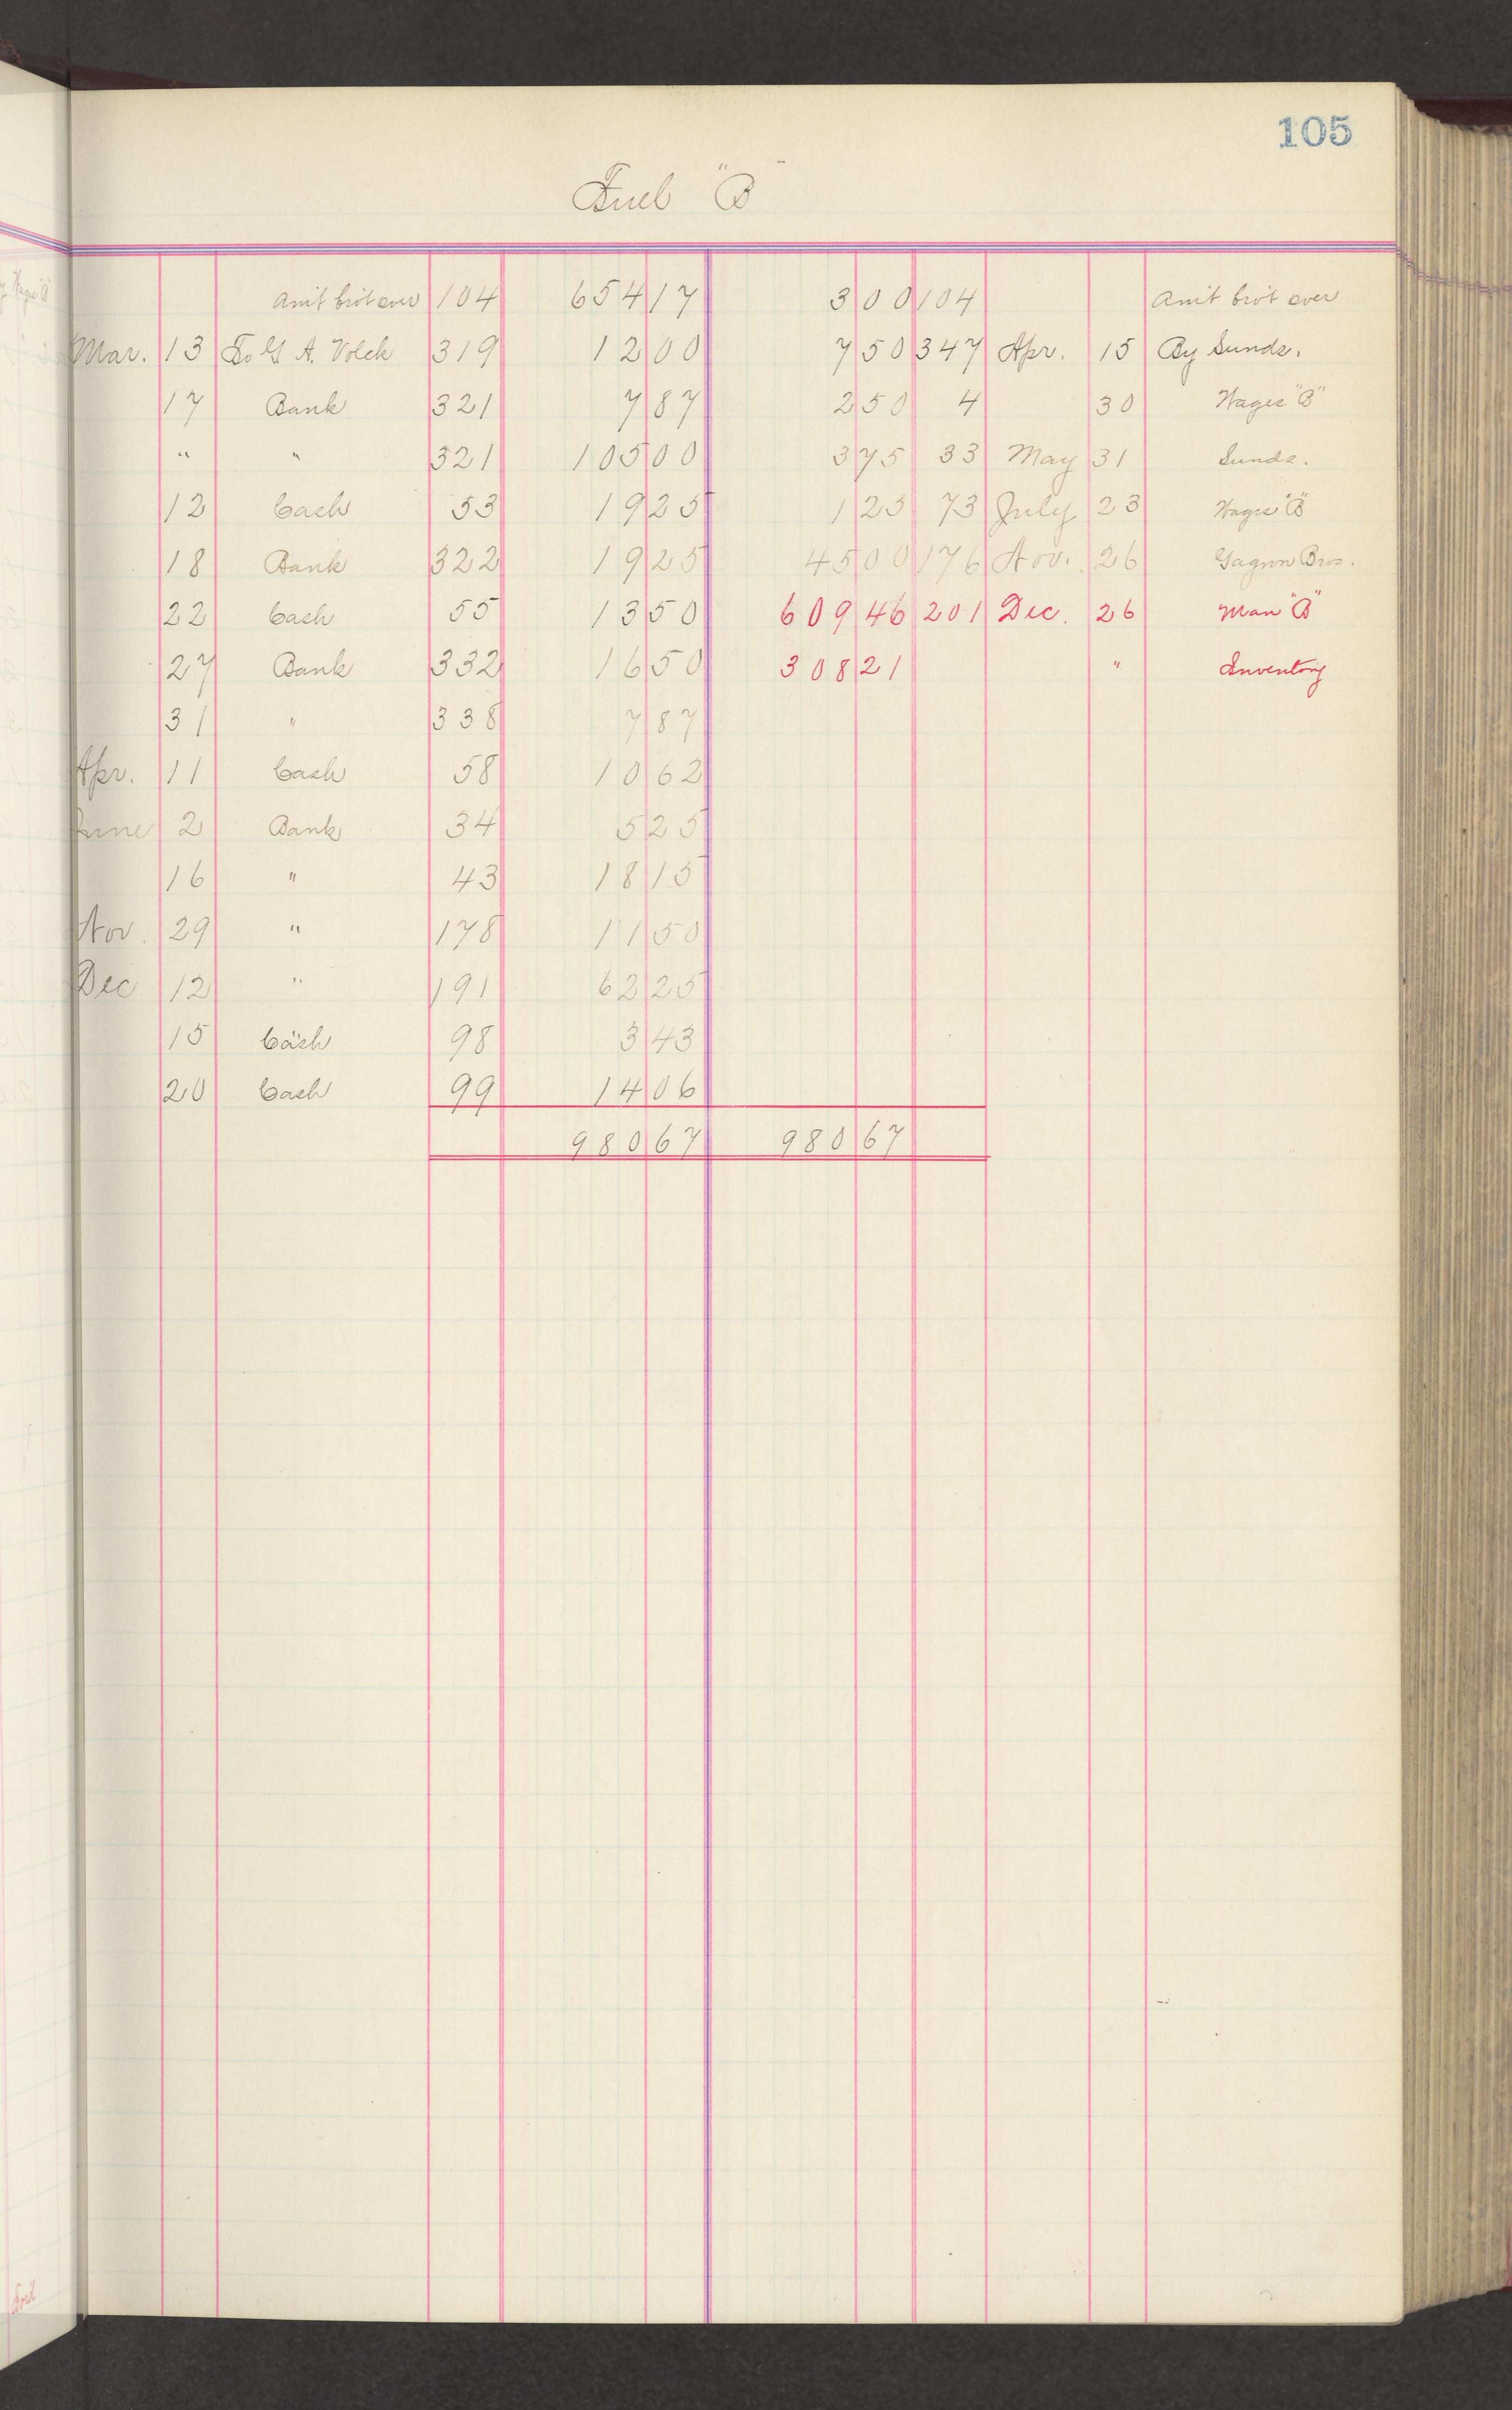 105
Fuel "B"
Am't bro't over 104 654 17 3 00 104 Am't bro't over
Mar. 13 To G A. Volck 319 12 00 7 50 347 Apr. 15 By Sunds.
17 Bank 321 7 87 2 50 4 30 Wages "B"
" " 321 105 00 3 75 33 May 31 Sunds.
12 Cash 53 19 25 1 25 73 July 23 Wages "B"
18 Bank 322 19 25 45 00 176 Nov. 26 Gagnon Bros.
22 Cash 55 13 50 609 46 201 Dec. 26 Man "B"
27 Bank 332 16 50 308 21 " Inventory
31 " 338 7 87
Apr. 11 Cash 58 10 62
June 2 Bank 34 5 25
16 " 43 18 15
Nov. 29 " 178 11 50
Dec 12 " 191 62 25
15 Cash 98 3 43
20 Cash 99 14 06
980 67 980 67